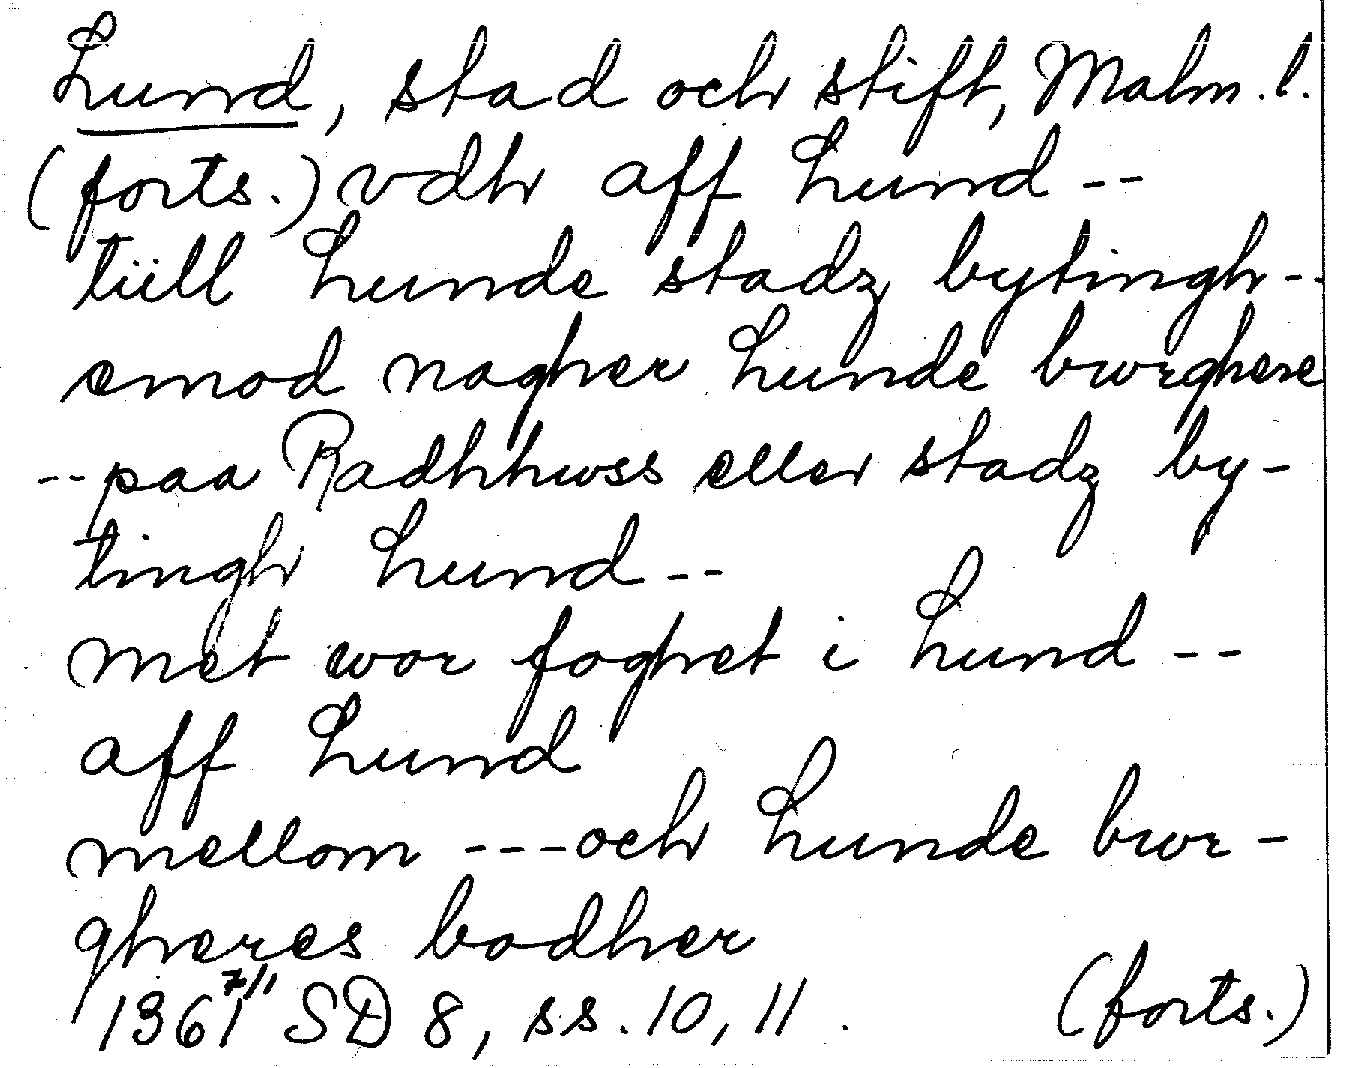 Lund, stad och stift, Malm. l.
(forts.) vdh aff Lund --
tiill Lunde stadz bytingh --
emod nagher Lunde bwrghere
-- paa Radhhwss eller stadz by-
tingh Lund --
met wor foghet i Lund --
aff Lund
mellom --- och Lunde bwr-
gheres bodher
1361 7/11 SD 8, ss. 10, 11. (forts.)